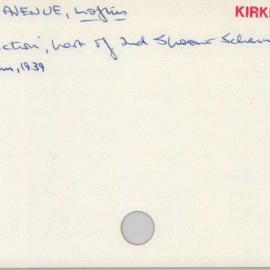 AVENUE, Loftus KIRK
ction', part of 2nd Spoon Schem
, 1939